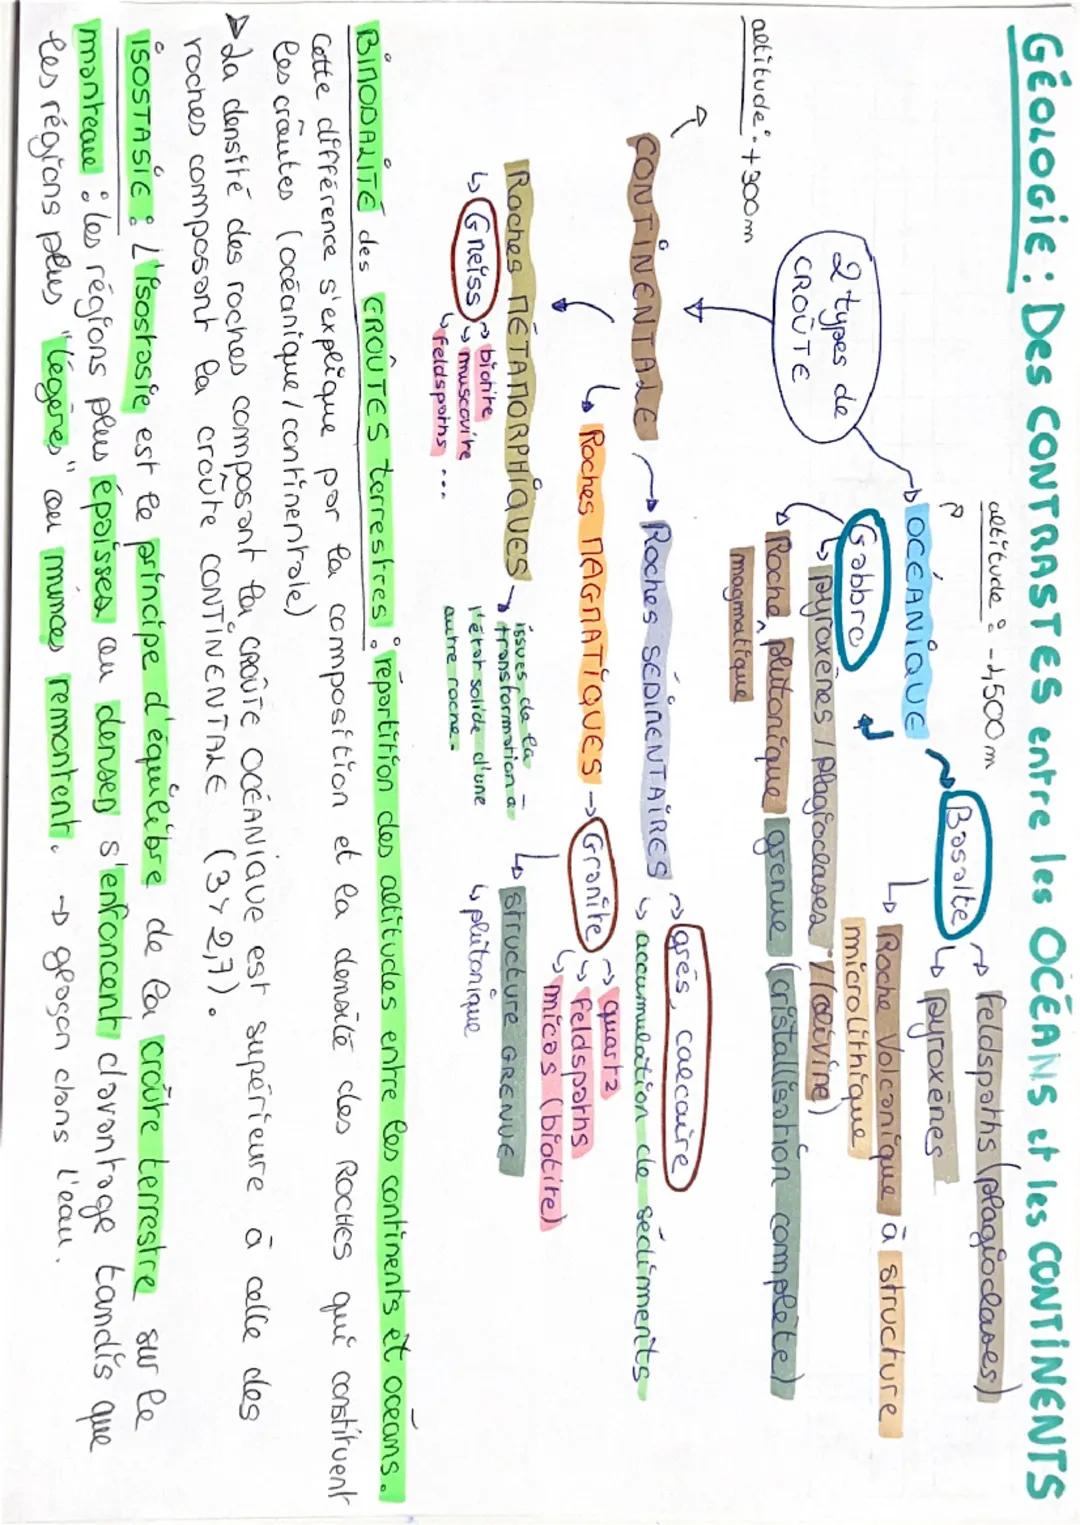 GÉOLOGIE : Des CONTRASTES entre les OCÉANS et les CONTINENTS
2 types de
CROÛTE
altitude : -4,500 m
OCÉANIQUE
Basalte
feldspaths (plagioclases)
pyroxènes
Roche Volcanique à structure
microlithique
Gabbro
pyroxènes / plagioclases / (olivine)
Roche plutonique grenue (cristallisation complète)
magmatique
altitude : +300m
CONTINENTALE
Roches SÉDIMENTAIRES
grés, calcaire
accumulation de sédiments
Roches MAGMATIQUES
Granite
quartz
feldspaths
micas (biotite)
structure GRENUE
plutonique
Roches MÉTAMORPHIQUES
issues de la
transformation à
l'état solide d'une
autre roche.
Gneïss
biotite
muscovite
feldspaths ...
BIMODALITÉ des CROÛTES terrestres : répartition des altitudes entre les continents et océans.
Cette différence s'explique par la composition et la densité des ROCHES qui constituent
les croûtes (océanique / continentale)
La densité des roches composant la CROÛTE OCÉANIQUE est supérieure à celle des
roches composant la croûte CONTINENTALE (3 > 2,7).
ISOSTASIE : L'isostasie est le principe d'équilibre de la croûte terrestre sur le
manteau : les régions plus épaisses ou denses s'enfoncent davantage tandis que
les régions plus "légères" ou minces remontent. → glaçon dans l'eau.